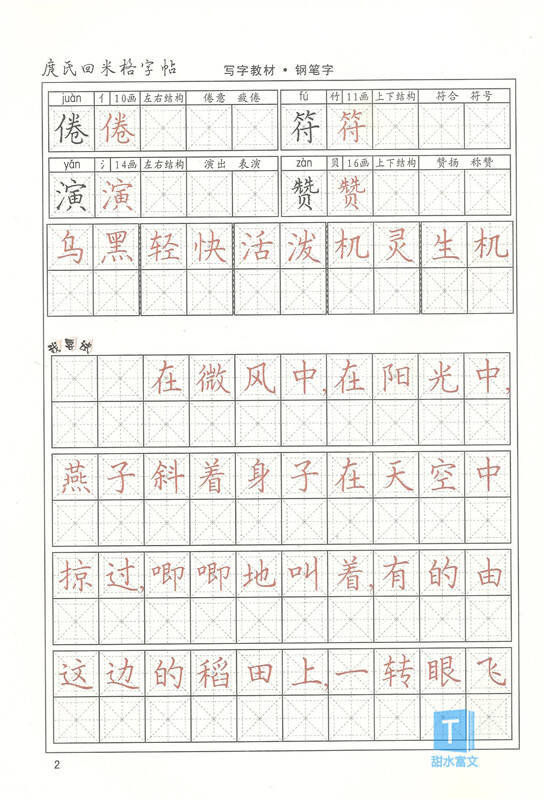 庹氏回米格字帖 写字教材·钢笔字
juàn 亻 10画 左右结构 倦意 疲倦 fú 竹 11画 上下结构 符合 符号
倦 倦 符 符
yǎn 氵 14画 左右结构 演出 表演 zàn 贝 16画 上下结构 赞扬 称赞
演 演 赞 赞
乌黑轻快活泼机灵生机
在微风中,在阳光中,
燕子斜着身子在天空中
掠过,唧唧地叫着,有的由
这边的稻田上,一转眼飞
T
甜水富文
2